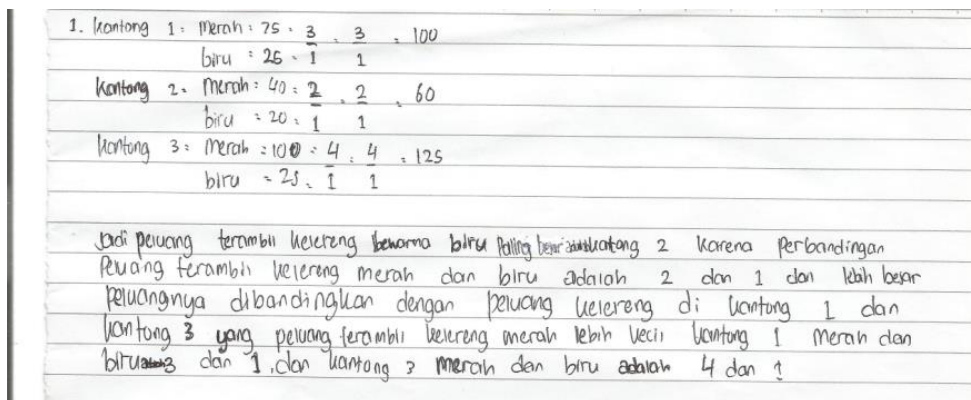 1. Kantong 1 : Merah : 75 : 3 : 3 : 100
biru : 25 : 1 1
Kantong 2 : Merah : 40 : 2 : 2 : 60
biru : 20 : 1 1
Kantong 3 : Merah : 100 : 4 : 4 : 125
biru = 25 : 1 1
Jadi peluang terambil kelereng bewarna biru paling besar kantong 2 karena perbandingan
peluang terambil kelereng merah dan biru adalah 2 dan 1 dan lebih besar
peluangnya dibandingkan dengan peluang kelereng di kantong 1 dan
kantong 3 yang peluang terambil kelereng merah lebih kecil kantong 1 merah dan
biru 3 dan 1, dan kantong 3 merah dan biru adalah 4 dan 1